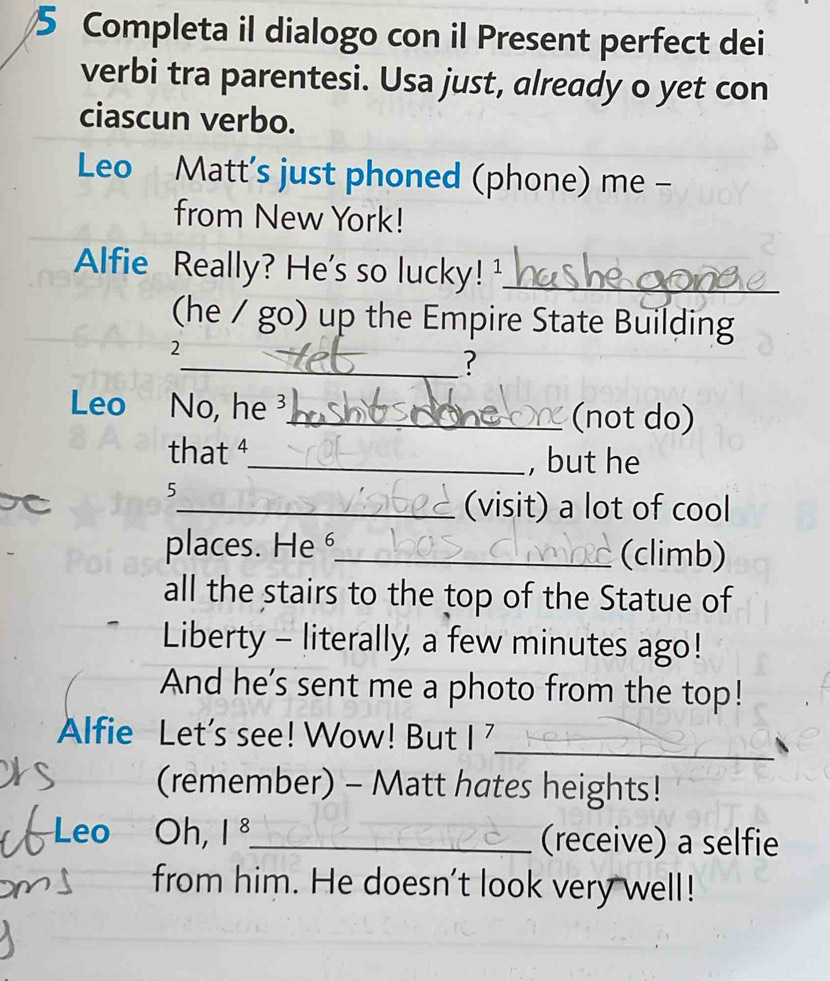 5 Completa il dialogo con il Present perfect dei
verbi tra parentesi. Usa just, already o yet con
ciascun verbo.
Leo Matt's just phoned (phone) me –
from New York!
Alfie Really? He's so lucky! 1 has he gone
(he / go) up the Empire State Building
2 yet ?
Leo No, he 3 done (not do)
that 4 yet, but he
5 visited (visit) a lot of cool
places. He 6 has climbed (climb)
all the stairs to the top of the Statue of
Liberty – literally, a few minutes ago!
And he's sent me a photo from the top!
Alfie Let's see! Wow! But I 7
(remember) – Matt hates heights!
Leo Oh, I 8 (receive) a selfie
from him. He doesn't look very well!